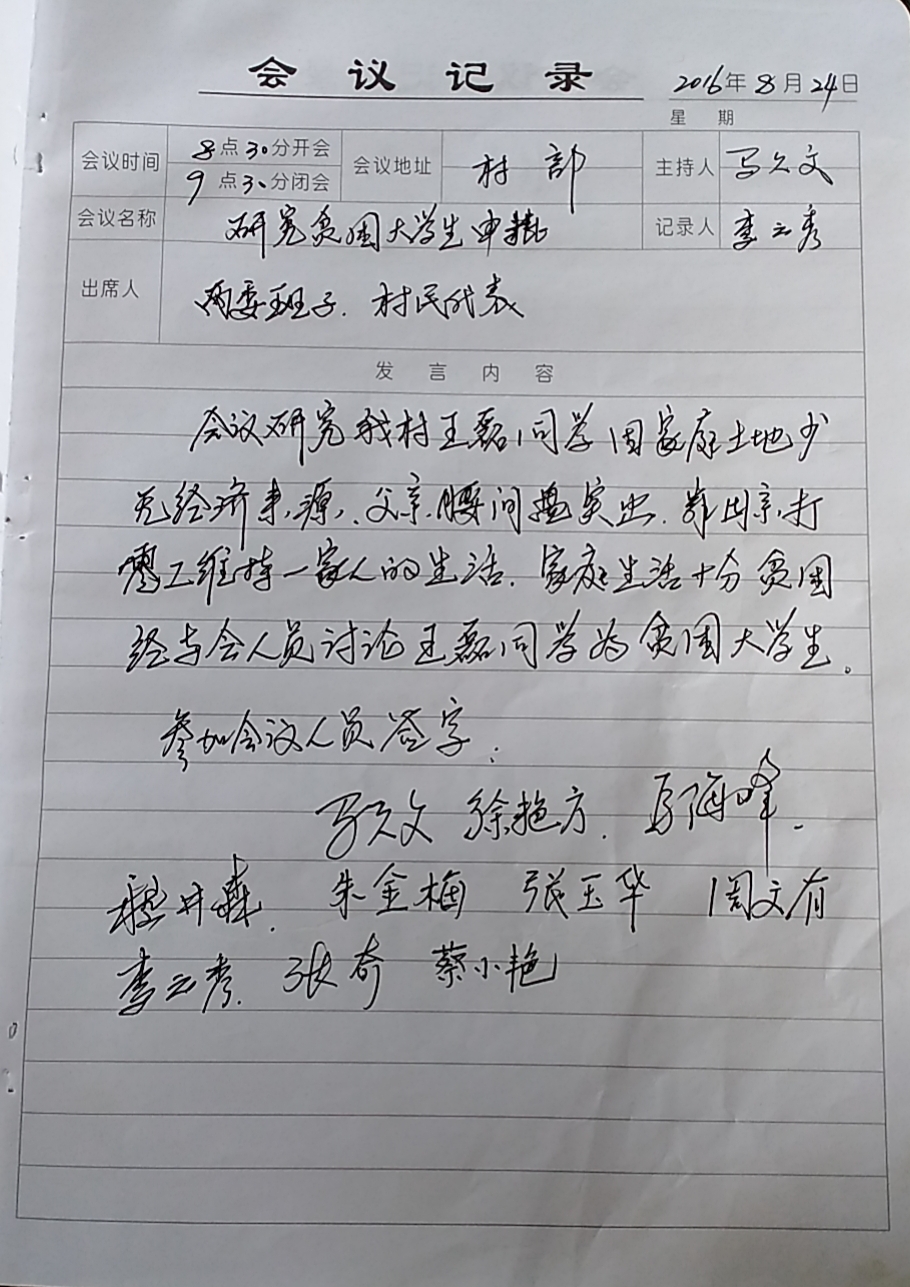 会议记录 2016年8月24日
星 期
会议时间 8点30分开会 会议地址 村部 主持人 马久文
9点30分闭会
会议名称 研究贫困大学生申请 记录人 李云秀
出席人 两委班子. 村民代表
发言内容
会议研究我村王磊同学因家庭土地少
无经济来源、父亲腰间盘突出. 靠母亲打
零工维持一家人的生活. 家庭生活十分贫困
经与会人员讨论王磊同学为贫困大学生。
参加会议人员签字:
马久文 徐艳方. 马海峰.
朱金梅 张玉华 周文有
李云秀. 张奇 蔡小艳